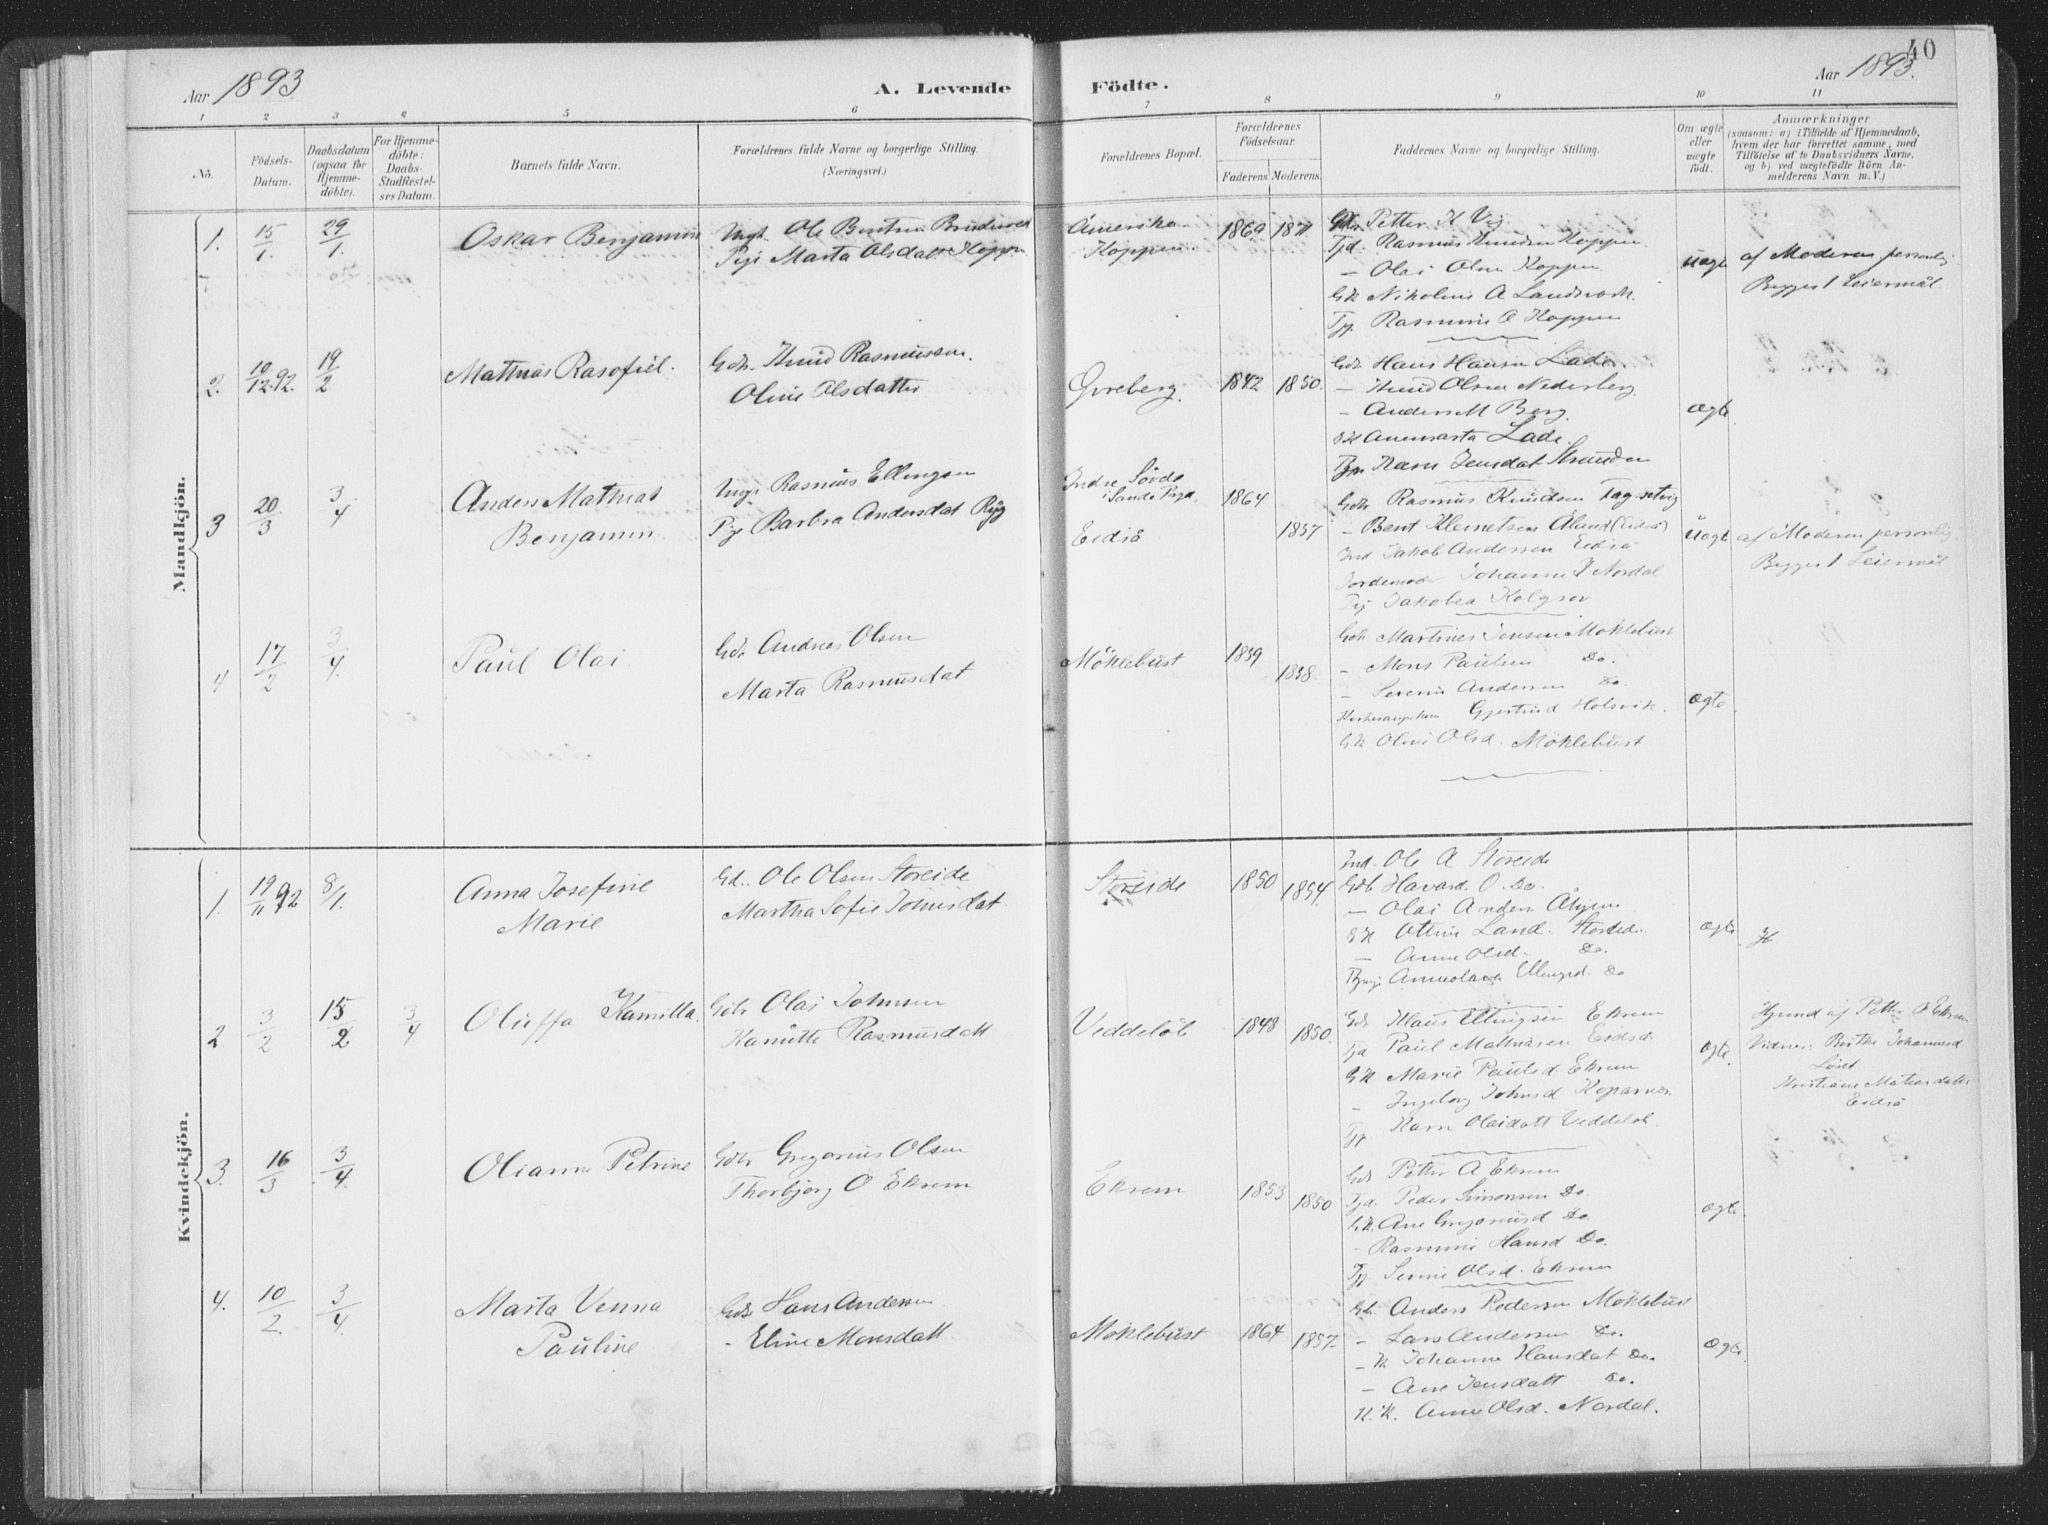 40
Aar 1893.
A. Levende Födte.
Aar 1893.
1 2 3 4 5 6 7 8 9 10 11
No.
Födsels-Datum.
Daabsdatum (ogsaa för Hjemmedöbte).
For Hjemmedöbte: Daabs-Stadfæstelses Datum.
Barnets fulde Navn.
Forældrenes fulde Navne og borgerlige Stilling.
(Næringsvei.)
Forældrenes Bopæl.
Forældrenes Födselsaar.
Faderens. Moderens.
Faddernes Navne og borgerlige Stilling.
Om ægte eller uægte födt.
Anmærkninger
(saasom: a) i Tilfælde af Hjemmedaab, hvem der har forrettet samme, med Tilföielse af to Daabsvidners Navne, og b) ved uægtefödte Börn Anmelderens Navn m. V.)
Mandkjön.
1. 15/1. 29/1. Oskar Benjamin
Ungk. Ole Bentsen
Pige Marta Olsdatter Koppen
Amerika
Koppen
1869 1871
Gdr. Petter K Vig
Tjd. Rasmus Knudsen Koppen
- Olai Olsen Koppen
Gk Nikoline A Landsverk.
Tjp. Rasmine O Koppen
uægte
af Moderen personlig
Begges 1 Leiermål.
2. 10/12.92. 19/2 Mathias Rasofiel.
Gdr. Knud Rasmussen.
Oline Olsdatter
Øvreberg.
1842 1850.
Gdr Hans Hansen Lade
- Knud Olsen Nederberg
- Anders M Berg.
GK Anemarta Lade.
Tjp. Karn Jensdat
ægte
3 20/3 3/4 Anders Mathias
Benjamin
Ungk Rasmus Ellingsen
Pige Barbra Andersdat Ryg
Indre Sörde
i Sande Prgd.
Eidsö
1864
1857
Gdr Rasmus Knudsen
- Bent Klemetsen Åland (Eidsö)
Ind Jakob Andersen Eidsö
Jordemoder Johanne J Nordal
Pig Jakobea Kolgrov
uægte
af Moderen personlig
Begges 1 Leiermål
4 17/2 3/4. Paul Olai
Gdr Andreas Olsen
Marta Rasmusdat
Möklebust
1859
1858.
Gdr Martines Jensen Möklebust
- Mons Paulsen Do.
- Severin Andersen Do.
Kirkesangerkone Gjertrud Holsvik.
Gk Oline Olsd. Möklebust
ægte
Kvindekjön.
1. 19/11 92 8/1. Anna Josefine
Marie
Gd. Ole Olsen Störeide
Martha Sofie Johnsdat
Störeide
1850 1854.
Ind. Ole A Störeide
Gdb Havard O. Do.
- Olai Anders
GK Ottine Land. Störeid.
- Anne Olsd. Do.
Anneolave Ellingsd. Do
ægte
H
2 3/2 15/2 3/4 Oluffa Kamilla.
Gdr Olai Johnsen
Kanutte Rasmusdatt
Veddelöb
1848 1850.
Gdr Klaus Ellingsen Ekrem
Tjd Paul Mathiasen Eidsö
GK Marie Paulsd Ekrem
- Ingeborg Johnsd Koparnes
Tjp. Karn Olaidatt Veddelöb.
ægte
Hjemd af Petter A Ekrem
Vidner: Birthe Johannesd
Löset
Kristiane Mathiasdatter
Eidsö
3. 16/3 3/4. Olianna Petrine
Gdr Gregorius Olsen
Thorbjörg O Ekrem
Ekrem
1853 1850
Gdr Petter A Ekrem
Tjd. Peder Simonsen Do.
GK. Ane Gregoriusd Do.
- Rasmine Hansd Do.
Tjp. Serine Olsd. Ekrem
ægte
4. 10/2. 3/4. Marta Venna
Pauline
Gdr Hans Andersen
- Eline Monsdatt
Möklebust
1864 1857
Gdr. Anders Pedersen Möklebust
- Lars Andersen Do.
- K Johanne Hansdat Do.
- Ane Jensdatt Do.
K. K. Anne Olsd. Nordal.
ægte